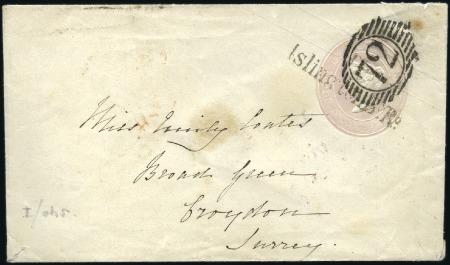 72
Isling
Miss Emily Coates
Broad Green
Croydon
Surrey.